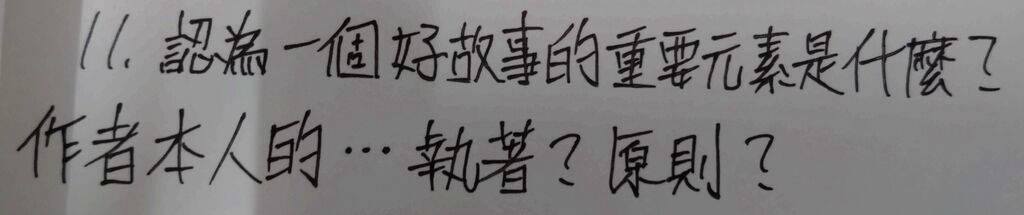 11. 認為一個好故事的重要元素是什麼？
作者本人的…執著？原則？